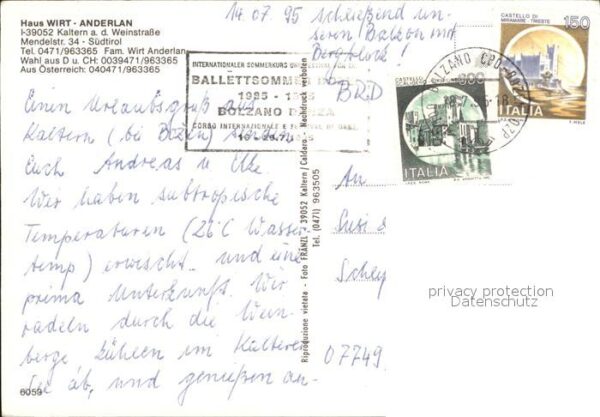 Haus WIRT - ANDERLAN
I-39052 Kaltern a. d. Weinstraße
Mendelstr. 34 - Südtirol
Tel. 0471/963365 Fam. Wirt Anderlan
Wahl aus D u. CH: 0039471/963365
Aus Österreich: 040471/963365
14.07.95 schließend un-
seren Balkon mit
Bergblick!
BRD
INTERNATIONALER SOMMERKURS
BALLETTSOMMER
1985 - 1995
BOLZANO DANZA
CORSO INTERNATIONALE E FESTIVAL DI DANZA
CASTELLO DI
MIRAMARE TRIESTE
150
ITALIA
BOLZANO CPO
CASTELLO
600
ITALIA
Einen Urlaubsgruß aus
Kaltern (bei Bozen) senden
Euch Andreas u. Elke
Wir haben subtropische
Temperaturen (26°C Wasser-
temp) erwischt und eine
prima Unterkunft. Wir
radeln durch die Wein-
berge kühlen im Kalterer
See ab, und genießen an-
Riproduzione vietata - Foto FRÄNZL 39052 Kaltern/Caldaro - Nachdruck verboten
Tel. (0471) 963505
An
Susi
07749
privacy protection
Datenschutz
6059